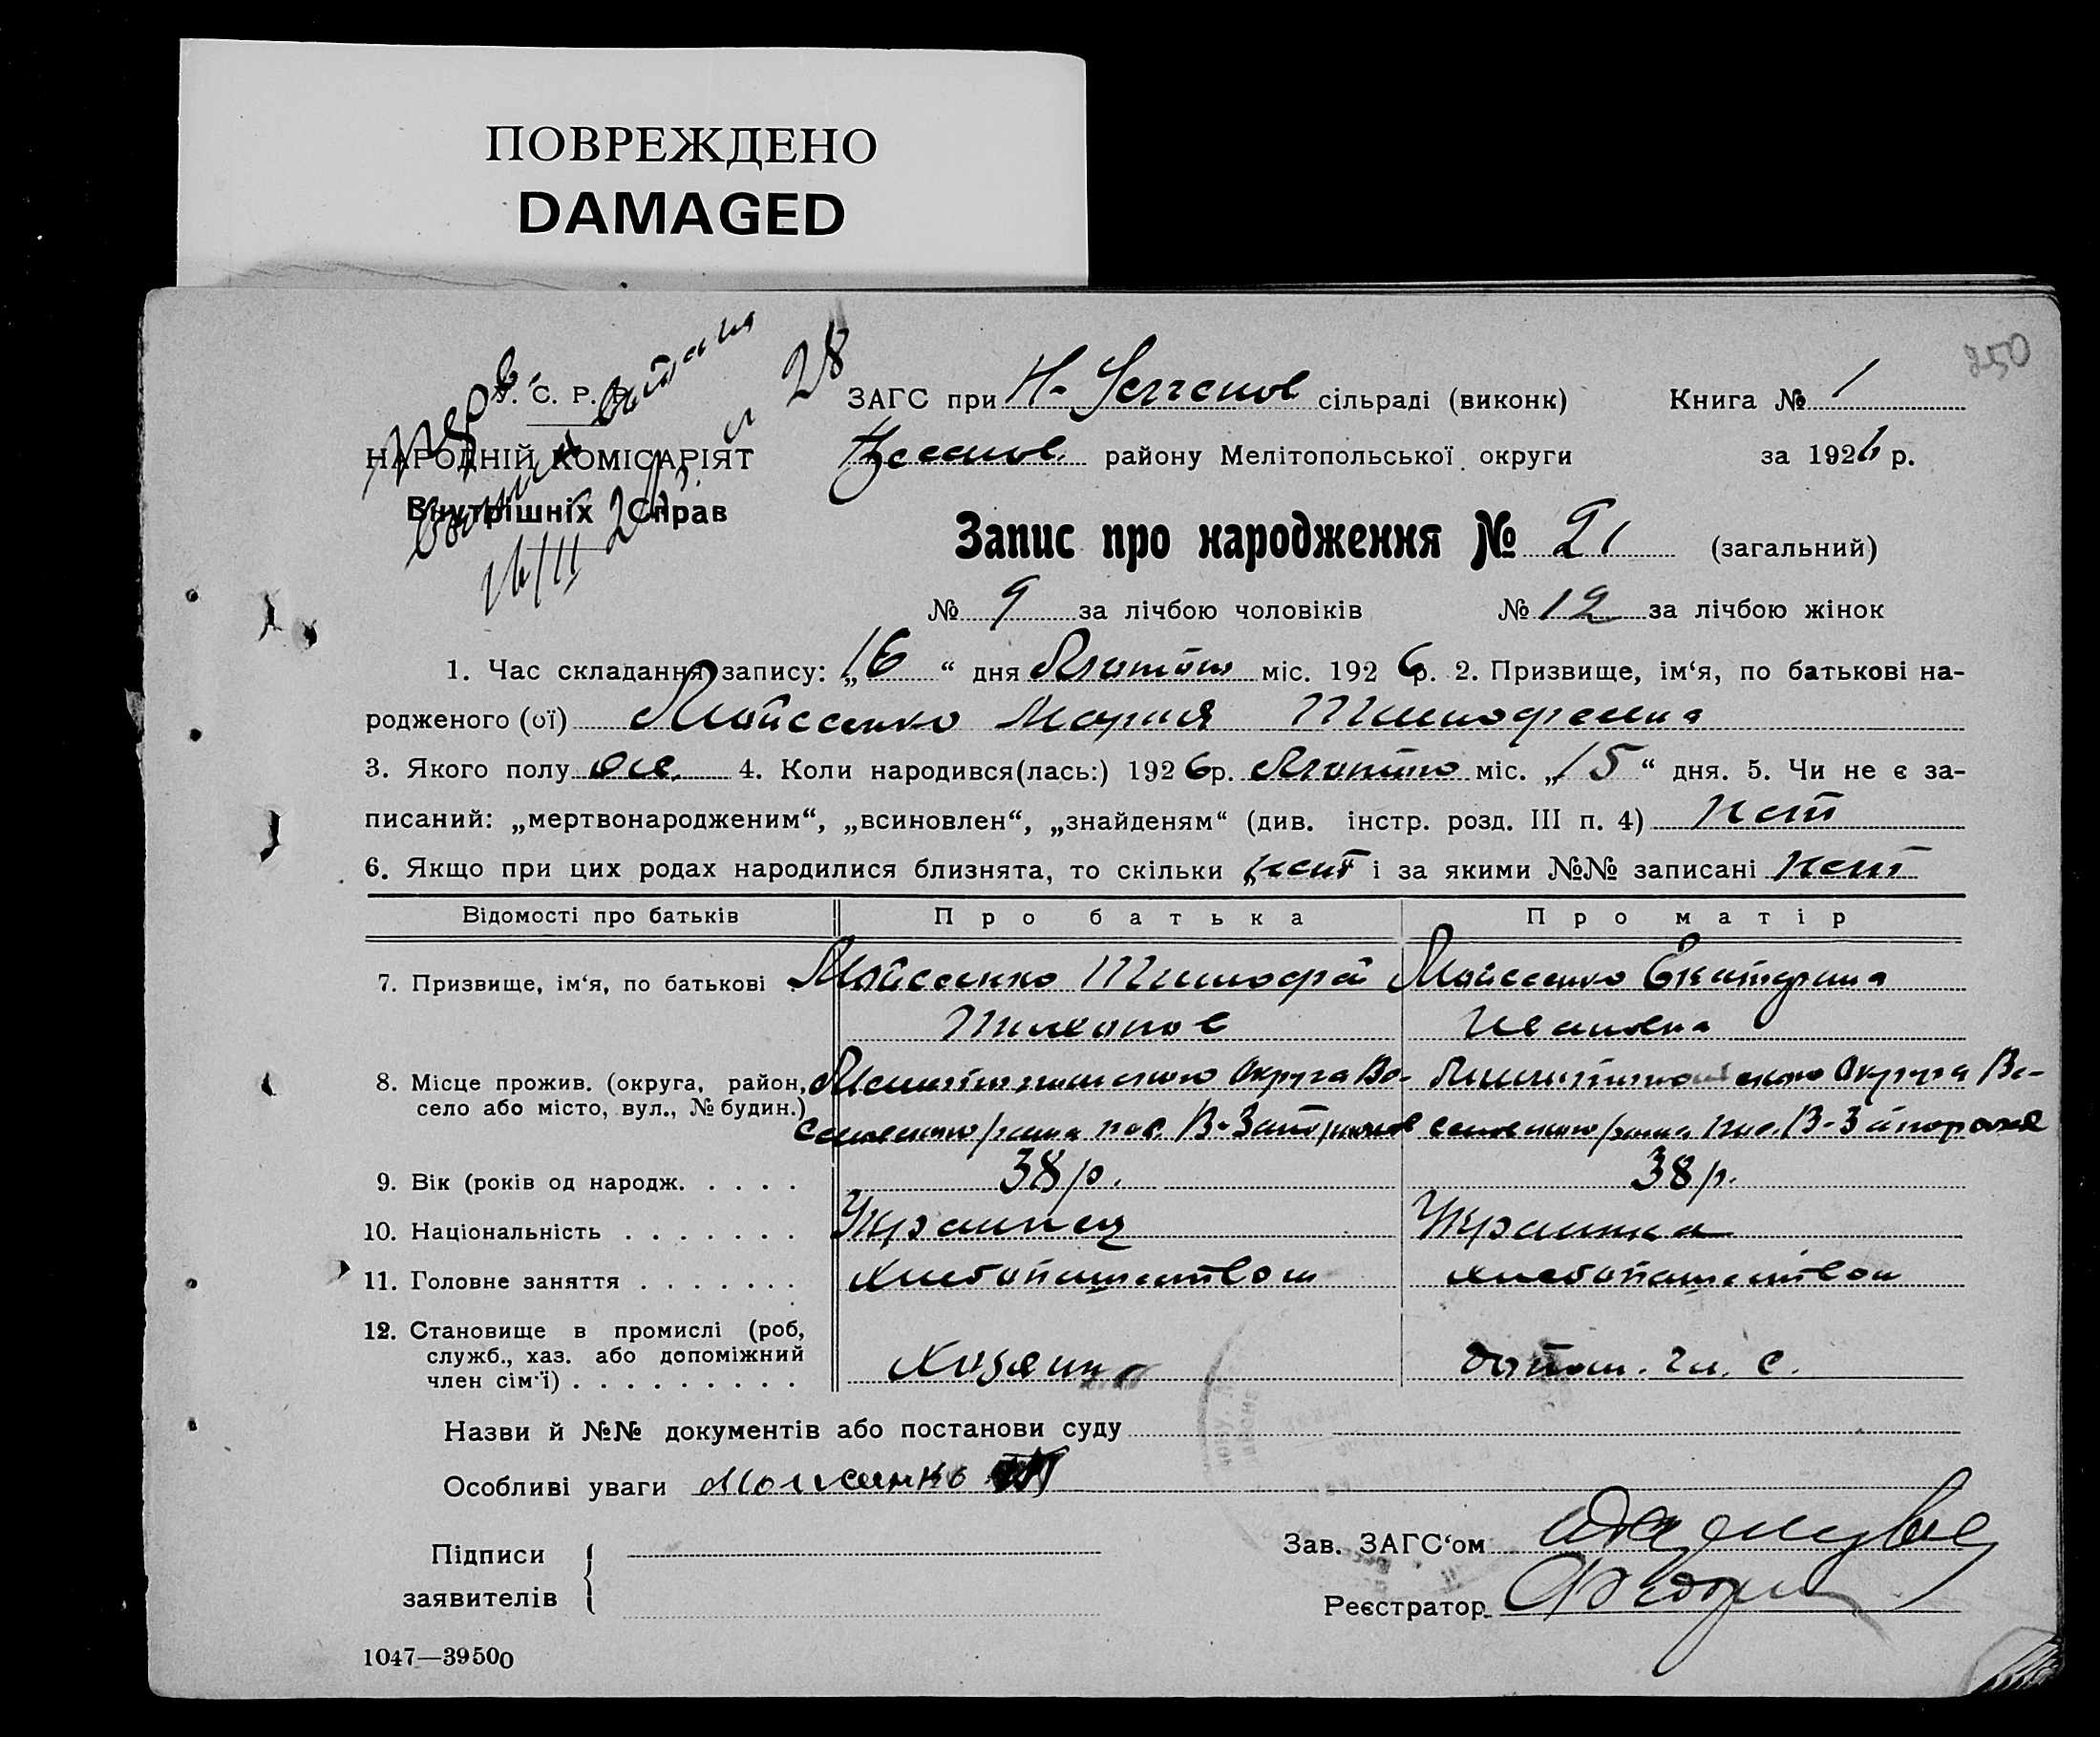 ПОВРЕЖДЕНО
DAMAGED
250
28
У. С. Р. Р.
ЗАГС при сільраді (виконк) Книга № 1
НАРОДНІЙ КОМІСАРІЯТ
району Мелітопольської округи за 1926 р.
Внутрішніх Справ
Запис про народження № 21 (загальний)
№ 9 за лічбою чоловіків № 12 за лічбою жінок
1. Час складання запису: „16“ дня міс. 1926 р. 2. Призвище, ім‘я, по батькові на-
родженого (ої) Мойсеенко Мария Тимофеевна
3. Якого полу жс. 4. Коли народився(лась:) 1926 р. міс. „15“ дня. 5. Чи не є за-
писаний: „мертвонародженим“, „всиновлен“, „знайденям“ (див. інстр. розд. III п. 4) Нет
6. Якщо при цих родах народилися близнята, то скільки „нет“ і за якими №№ записані Нет
Відомості про батьків Про батька Про матір
7. Призвище, ім‘я, по батькові Мойсеенко Тимофей Мойсеенко Екатерина
Ивановна
8. Місце прожив. (округа, район, Округа Ве- Округа Ве-
село або місто, вул., № будин.) пос. В-Запорожье
9. Вік (років од народж. 38 р. 38 р.
10. Національність Украинец Украинка
11. Головне заняття хлебопашеством хлебопашеством
12. Становище в промислі (роб,
служб., хаз. або допоміжний Хозяин допом. чл. с.
член сім‘ї)
Назви й №№ документів або постанови суду
Особливі уваги
Підписи
заявителів
Зав. ЗАГС‘ом
Реєстратор
1047—39500